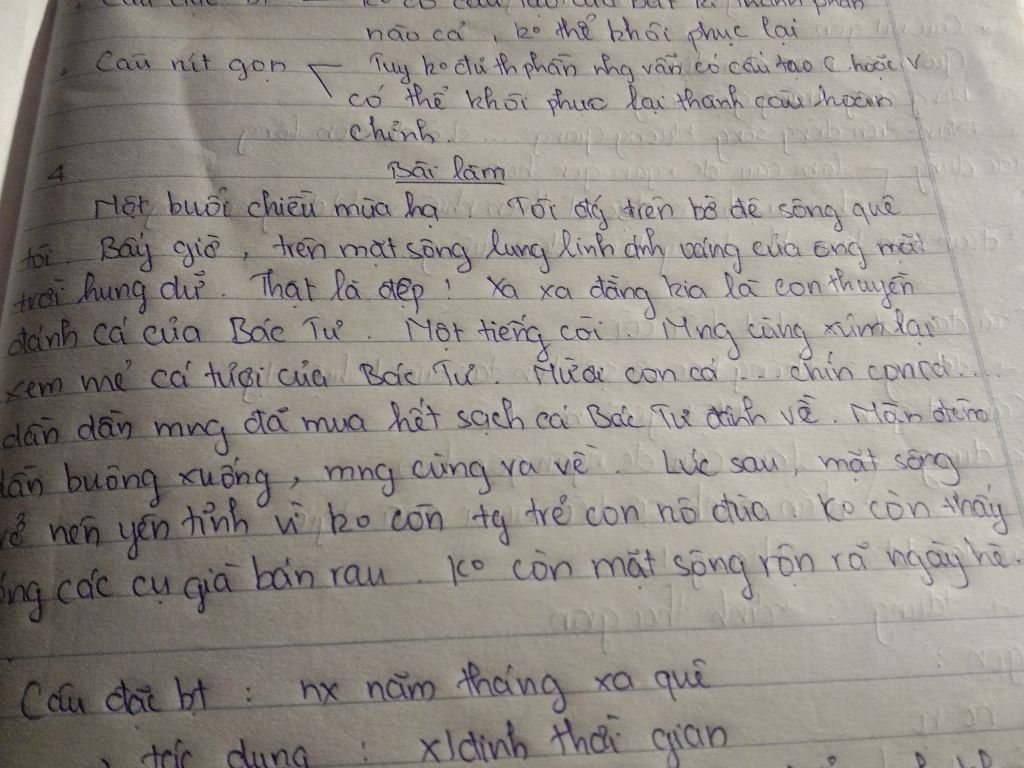 ko có cấu tạo câu bất kì thành phần
nào cả, ko thể khôi phục lại
. Câu rút gọn < Tuy ko đủ th phần nhg vẫn có cấu tạo C hoặc V
có thể khôi phục lại thành câu hoàn
chỉnh.
4 Bài làm
Một buổi chiều mùa hạ. Tôi đg trên bờ đê sông quê
tôi. Bấy giờ, trên mặt sông lung linh ánh vàng của ông mặt
trời hung dữ. Thật là đẹp! Xa xa đằng kia là con thuyền
đánh cá của Bác Tư. Một tiếng còi. Mng cùng xúm lại
xem mẻ cá tươi của Bác Tư. Mười con cá... chín con cá...
dần dần mng đã mua hết sạch cá Bác Tư đánh về. Màn đêm
dần buông xuống, mng cùng ra về. Lúc sau, mặt sông
trở nên yên tĩnh vì ko còn tg trẻ con nô đùa. Ko còn thấy
các cụ già bán rau. Ko còn mặt sông rộn rã ngày hè.
Câu đặc bt : nx năm tháng xa quê
, tác dụng : xđ định thời gian